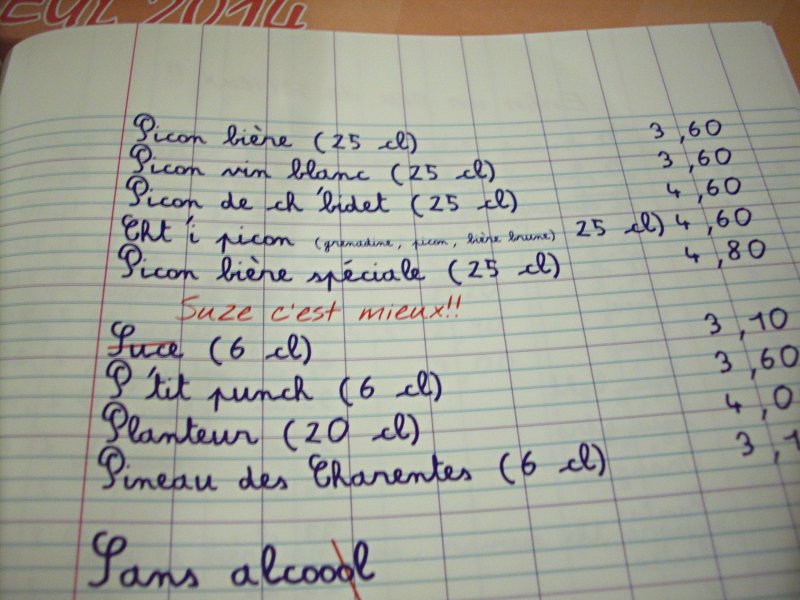 2014
Picon bière (25 cl) 3,60
Picon vin blanc (25 cl) 3,60
Picon de ch'bidet (25 cl) 4,60
Cht'i picon (grenadine, picon, bière brune) 25 cl) 4,60
Picon bière spéciale (25 cl) 4,80
Suze c'est mieux!!
Suce (6 cl) 3,10
P'tit punch (6 cl) 3,60
Planteur (20 cl) 4,0
Pineau des Charentes (6 cl) 3,1
Sans alcoool